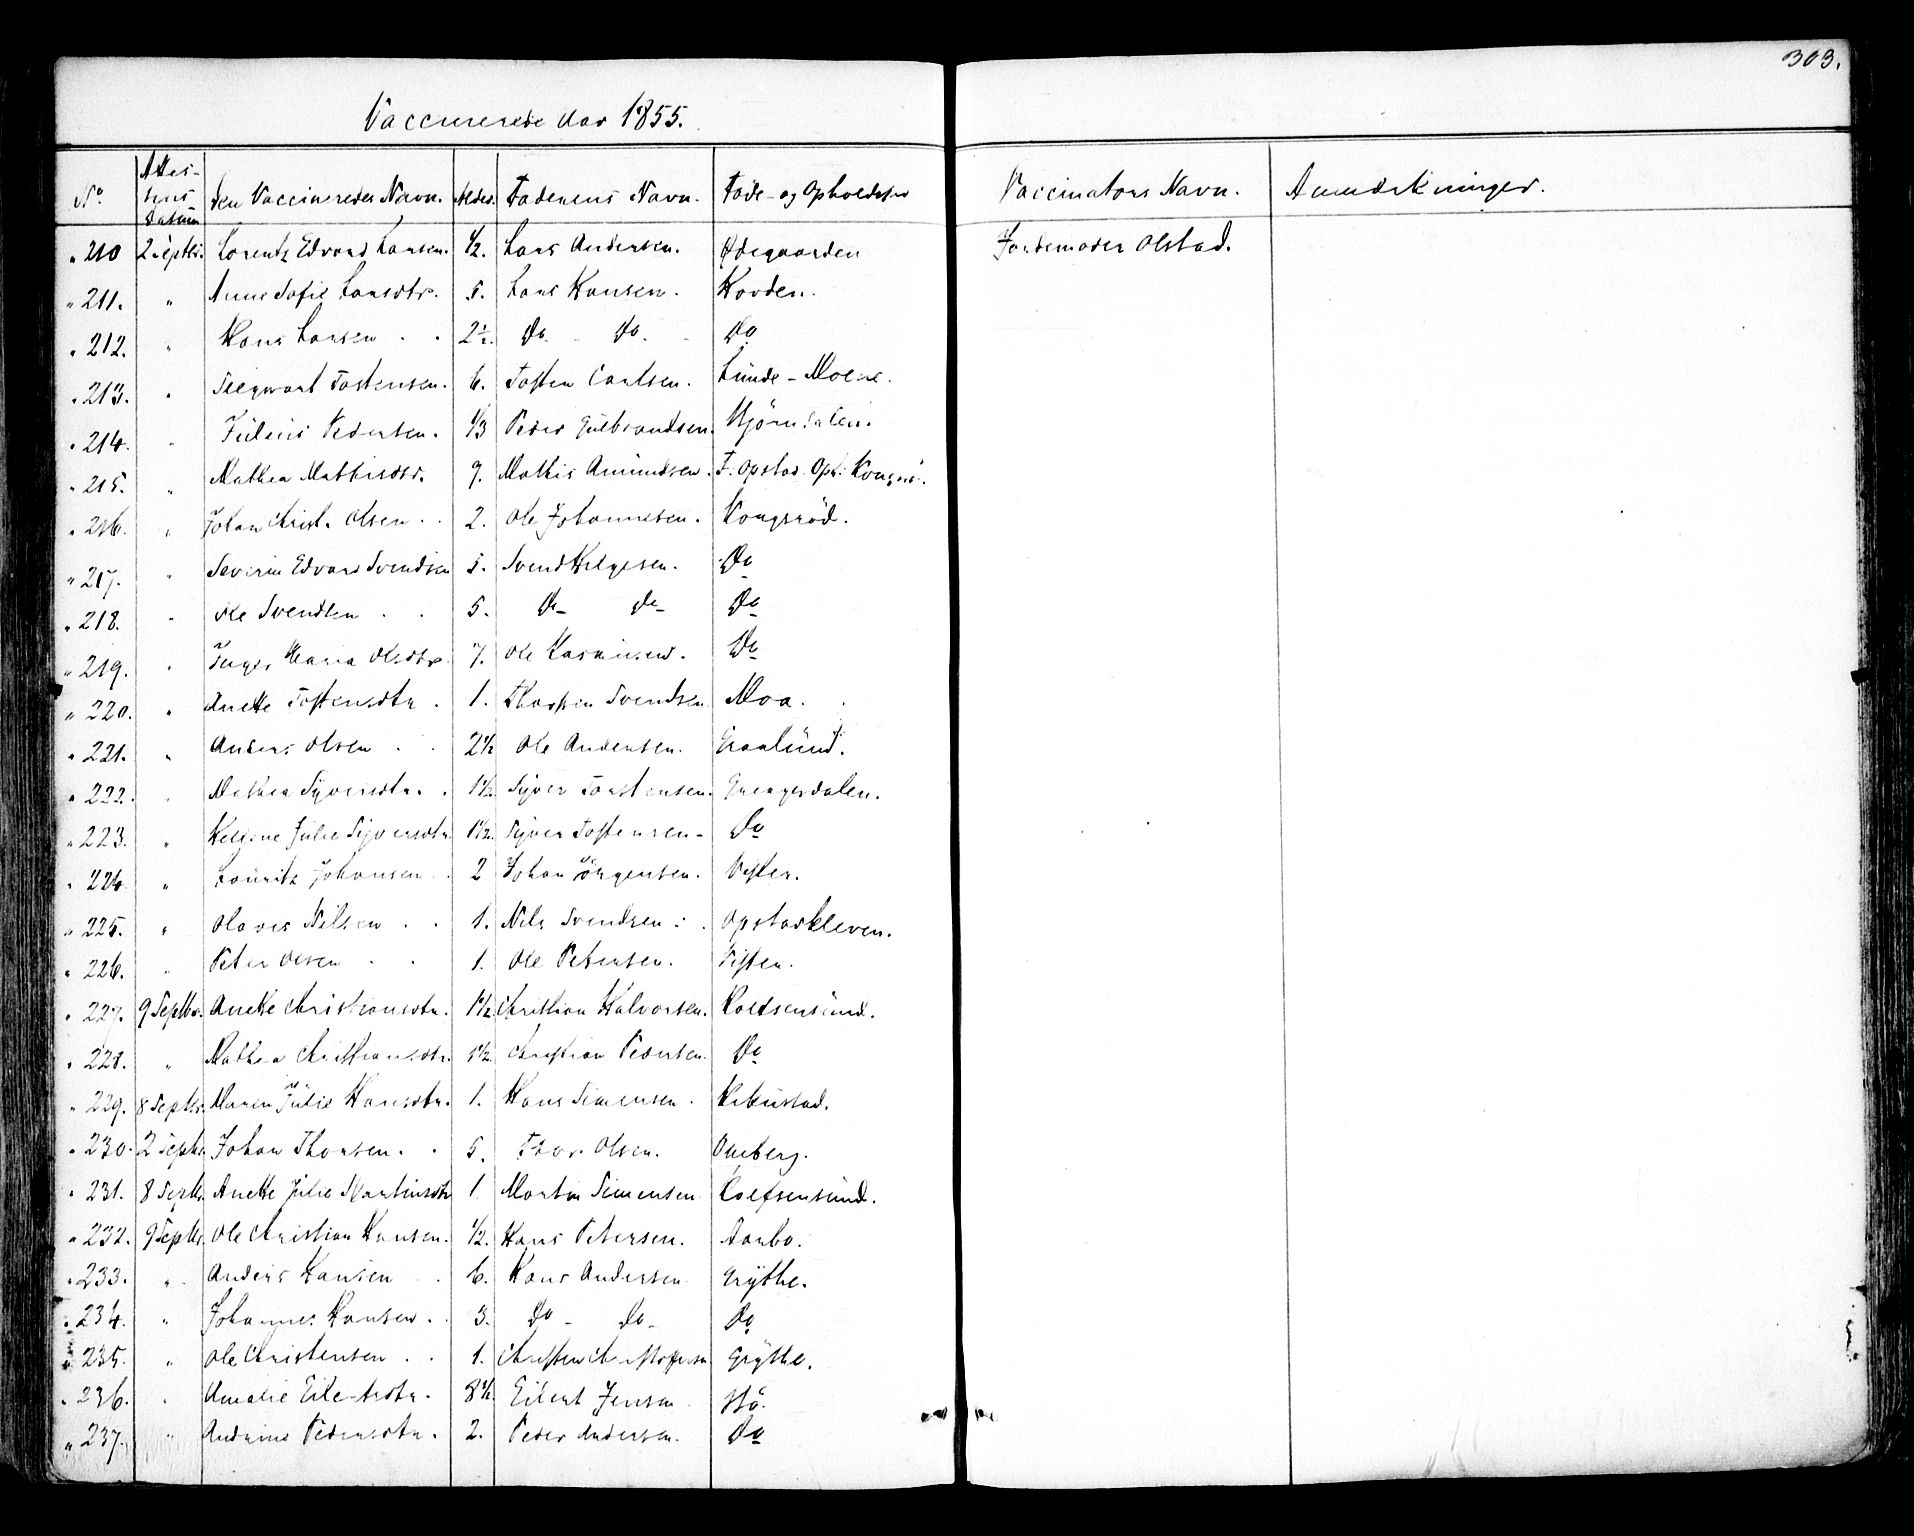 303.
Vaccinerede Aar 1855.
No. Attestens Datum den Vaccineredes Navn. Alder. Faderens Navn. Föde- og Opholdssted Vaccinators Navn. Anmærkninger.
" 210 2 Septbr. Lorentz Edvard Larsen. 1/2. Lars Andersen. Ødegaarden Jordemoder Olstad.
" 211. " Anne Sofie Larsdtr. 5. Lars Hansen. Hovden.
" 212. " Hans Larsen . . 2 1/2. Do. - Do. - Do
" 213. " Siegwart Tostensen. 6. Tosten Carlsen. Lunde-Moene.
" 214. " Julius Pedersen. 1/3 Peder Gulbrandsen. Hjörndalen.
" 215. " Mathea Mathisdtr. 9. Mathis Amundsen. F. Opstad. Oph:
" 216. " Johan Christ. Olsen . . 2. Ole Johannesen. Kongsröd.
" 217. " Severin Edvard Svendsen 5. Svend Helgesen. Do
" 218. " Ole Svendsen . . 5. Do - Do - Do
" 219. " Inger Maria Olsdtr. 7. Ole Rasmusen. Do
" 220. " Anette Tostensdtr . 1. Thosten Svendsen Moa.
" 221. " Anders Olsen . . 2 1/2 Ole Andersen. Graalund.
" 222. " Mathea Syversdtr. . 1 1/2. Syver Torstensen.
" 223. " Helene Julie Syversdtr 1 1/2. Syver Tostensen- Do
" 224. " Lauritz Johansen . 2 Johan Jörgensen.
" 225. " Olaves Nilsen . . 1. Nils Svendsen . Opstadkleven.
" 226. " Peter Olsen . . 1. Ole Petersen.
" 227. 9 Septbr. Anette Christiansdtr. 1 1/2 Christian Halvorsen. Roefsensund.
" 228. " Mathea Christiansdtr 1 1/2. Christian Pedersen. Do
" 229. 8 Septbr. Maren Julie Hansdtr. 1. Hans Simensen .
" 230. 2 Septbr Johan Thorsen. . 5. Thor. Olsen.
" 231. 8 Septbr. Anette Julie Martinsdtr 1. Martin Simensen Roefsensund.
" 232. 9 Septbr. Ole Christian Hansen. 1/2. Hans Petersen. Aarbo.
" 233. " Anders Hansen . . 6. Hans Andersen. Grythe.
" 234. " Johannes Hansen . . 3. Do - Do - Do
" 235. " Ole Christensen . . 1. Christen Christophersen Grythe.
" 236. " Amalie 8 1/2. Eilert Jensen Hö.
" 237. " Andrine Pedersdtr. 2. Peder Andersen. Do